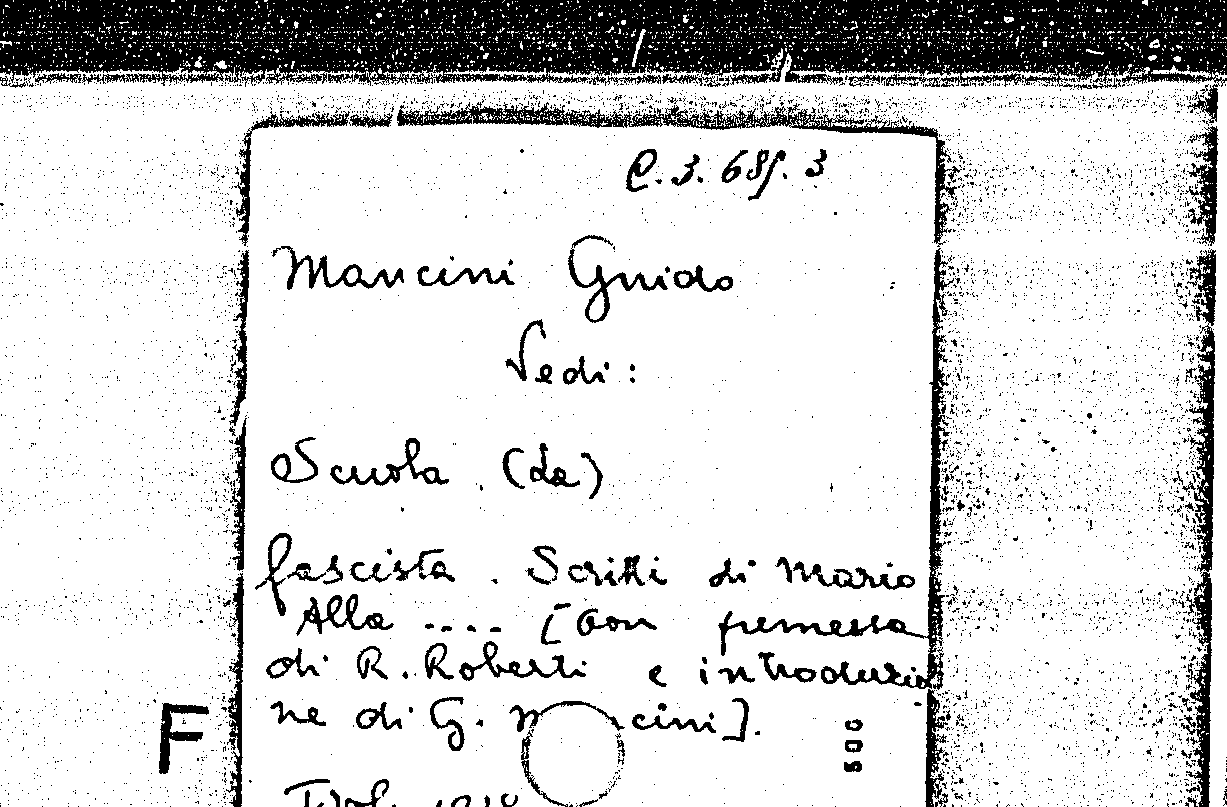 C. 3. 685. 3
Mancini Guido
Vedi:
Scuola (La)
fascista. Scritti di Mario
Alla .... [Con premessa
di R. Roberti e introduzio
ne di G. Mancini].
F
500